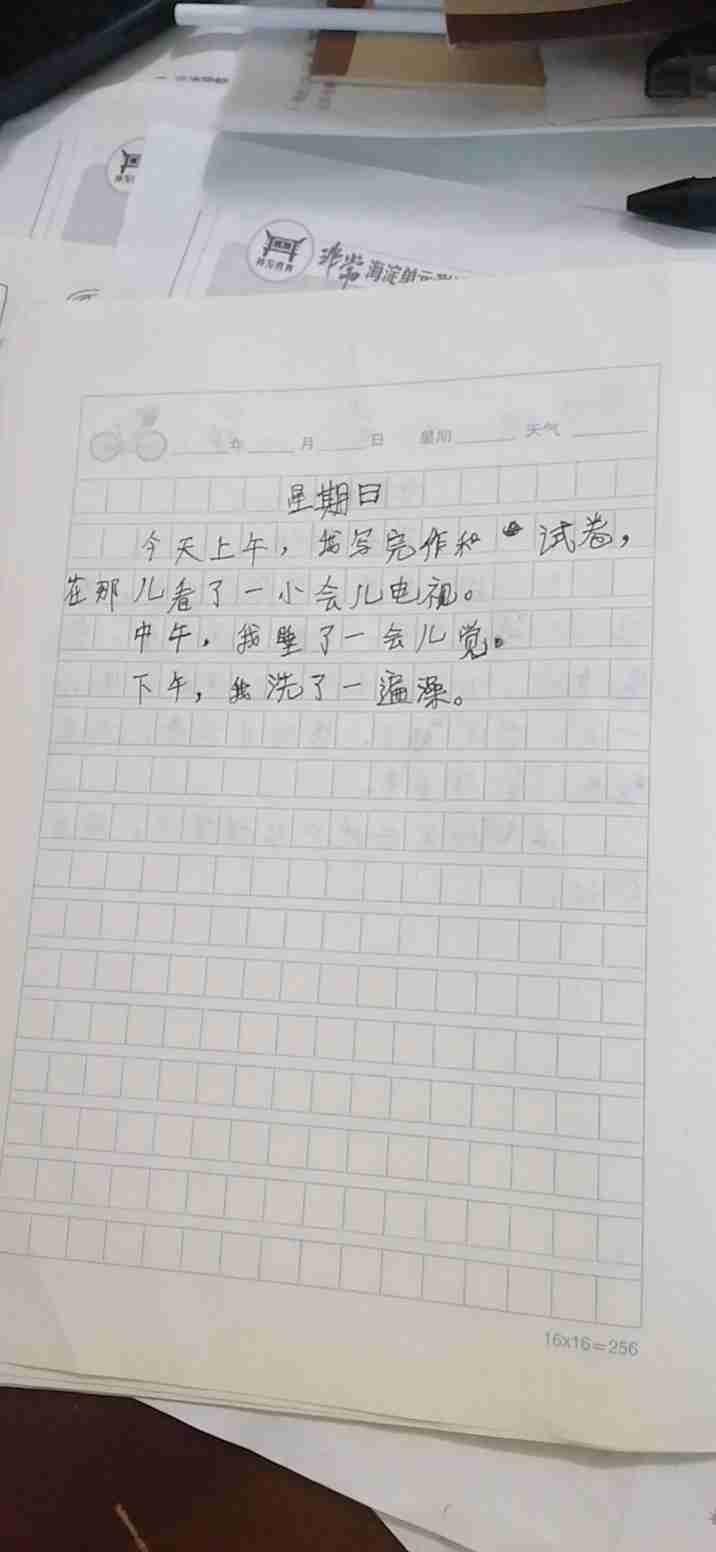 非常 海淀单元
年 月 日 星期 天气
星期日
今天上午，我写完作和试卷，
在那儿看了一小会儿电视。
中午，我睡了一会儿觉。
下午，我洗了一遍澡。
16x16=256